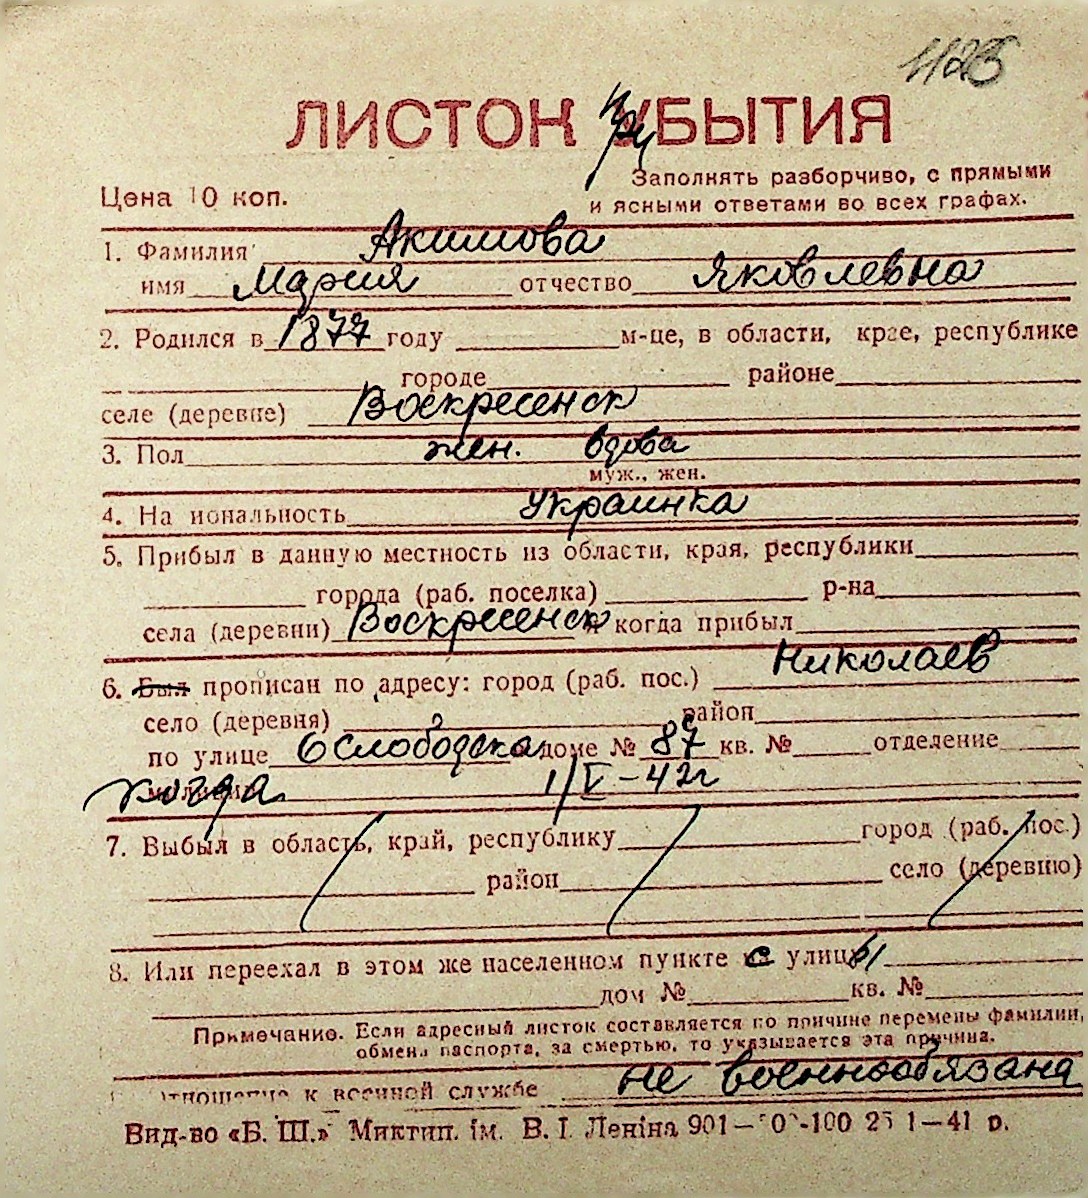 1126
ЛИСТОК ПриБЫТИЯ
Цена 10 коп.
Заполнять разборчиво, с прямыми
и ясными ответами во всех графах.
1. Фамилия Акимова
имя Мария отчество Яковлевна
2. Родился в 1877 году м-це, в области, крае, республике
городе районе
селе (деревне) Воскресенск
3. Пол жен. вдова
муж., жен.
4. На иональность Украинка
5. Прибыл в данную местность из области, края, республики
города (раб. поселка) р-на
села (деревни) Воскресенск когда прибыл
6. Был прописан по адресу: город (раб. пос.) Николаев
село (деревня) район
по улице 6 Слободская доме № 87 кв. № отделение
когда 1/V-42г
7. Выбыл в область, край, республику город (раб. пос.)
район село (деревню)
8. Или переехал в этом же населенном пункте с улицы
дом № кв. №
Примечание. Если адресный листок составляется по причине перемены фамилии,
обмена паспорта, за смертью, то указывается эта причина.
Отношение к военной службе не военнообязана
Вид-во «Б. Ш.» Миктип. ім. В. І. Леніна 901— -100 25 1—41 р.